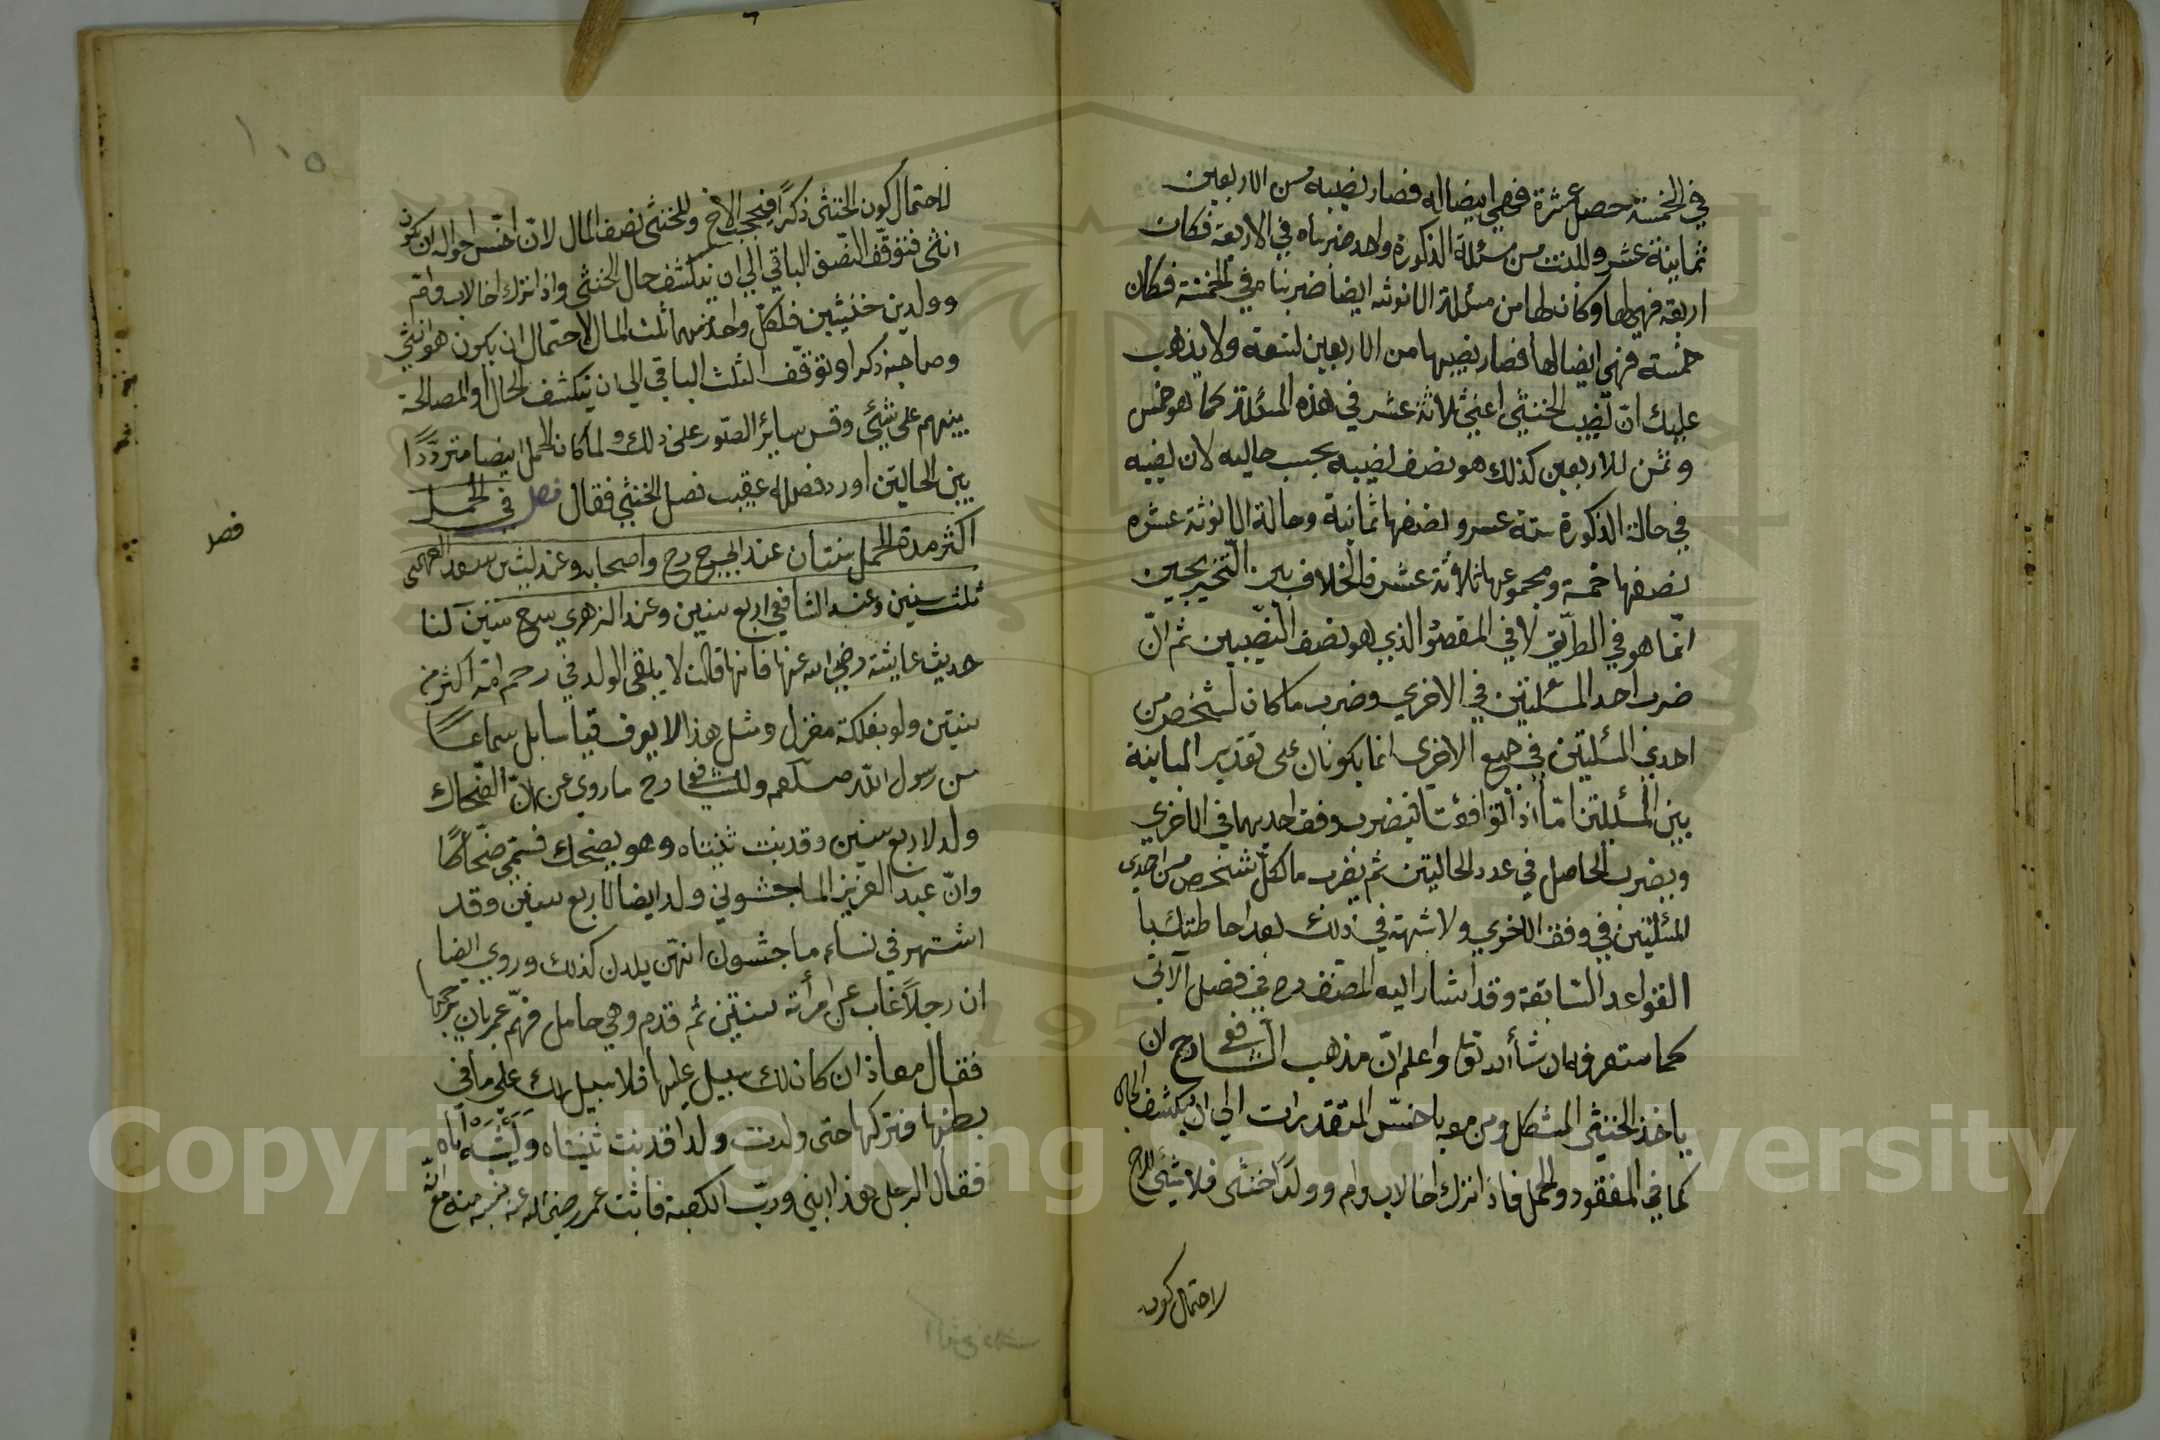 في الخمسة حصل عشرة فهي ايضا له فصار نصيبه من الاربعين
ثمانية عشر وللبنت من مسئلة الذكورة واحد ضربناه في الاربعة فكان
اربعة فهي لها وكان لها من مسئلة الانوثة ايضا ضربنا في الخمسة فكان
خمسة فهي ايضا لها فصار نصيبها من الاربعين تسعة ولا يذهب
عليك انّ نصيب الخنثى اعني ثلاثة عشر في هذه المسئلة كما هو خمس
وثمن للاربعين كذلك هو نصف نصيبه بحسب حاليه لان نصيبه
في حالة الذكورة ستة عشر ونصفها ثمانية وحالة الانوثة عشرة
نصفها خمسة ومجموعها ثلاثة عشر فالخلاف بين التخريجين
انّما هو في الطريق لا في المقصود الذي هو نصف النصيبين ثم انّ
ضرب احد المسئلتين في الاخري وضرب ما كان لشخص من
احدي المسئلتين في جميع الاخري انما يكونان على تقدير المباينة
بين المسئلتين امّا اذا توافقتا فيضرب وفق احديهما في الاخري
ويضرب الحاصل في عدد الحالتين ثم يضرب ما لكلّ شخص من احدي
المسئلتين في وفق الاخري ولا شبهة في ذلك بعد احاطتك با
القواعد السّابقة وقد اشار اليه المصنّف رح في فصل الآتي
كما ستعرفه ان شأ الله تع واعلم انّ مذهب الشافعي رح ان
ياخذ الخنثي المشكل ومن معه باخسّ التقديرات الي ان ينكشف الحال
كما في المفقود والحمل فاذا ترك اخا لاب وام وولدًا خنثى فلا شيئ للاخ
لاحتمال كون
١٠٥
لاحتمال كون الخنثى ذكرًا فيحجب الاخ وللخنثى نصف المال لانّ اخسّ احواله ان يكون
انثى فنوقّف النّصف الباقي الي ان ينكشف حال الخنثى واذا ترك اخا لاب وامّ
وولدين خنثيين فلكلّ واحد منهما ثلث المال لاحتمال ان يكون هو انثي
وصاحبه ذكرا ونوقّف الثلث الباقي الي ان ينكشف الحال او المصالحة
بينهم على شيئ وقس سائر الصّور على ذلك ولما كان الحمل ايضا متردّدًا
بين الحالتين اورد فصله عقيب فصل الخنثي فقال فصل في الحمل
اكثر مدة الحمل سنتان عند ابي ح رح واصحابه وعند ليث بن سعد الفهمي
فصل
ثلث سنين وعند الشافعي اربع سنين وعند الزهري سبع سنين لنا
حديث عايشة رضي الله عنها فانها قالت لا يبقى الولد في رحم امّه اكثر من
سنتين ولو بفلكة مغزل ومثل هذا لا يعرف قياسا بل سماعًا
من رسول الله صلعم وللشافعي رح ما روي عن انّ الضّحاك
ولد لاربع سنين وقد نبت ثنيتاه وهو يضحك فسمّي ضحّاكًا
وانّ عبد العزيز الماجشوني ولد ايضا لاربع سنين وقد
اشتهر في نساء ماجشون انهنّ يلدن كذلك وروي ايضا
ان رجلاً غاب عن امرأته سنتين ثم قدم وهي حامل فهمّ عمر بان يرجمها
فقال معاذ ان كان لك سبيل عليها فلا سبيل لك على ما في
بطنها فتركها حتى ولدت ولدًا قد نبت ثنيتاه ويشبه اباه
فقال الرجل هذا ابني وربّ الكعبة فاثبت عمر رضي الله عنه نسبه منه مع انّه